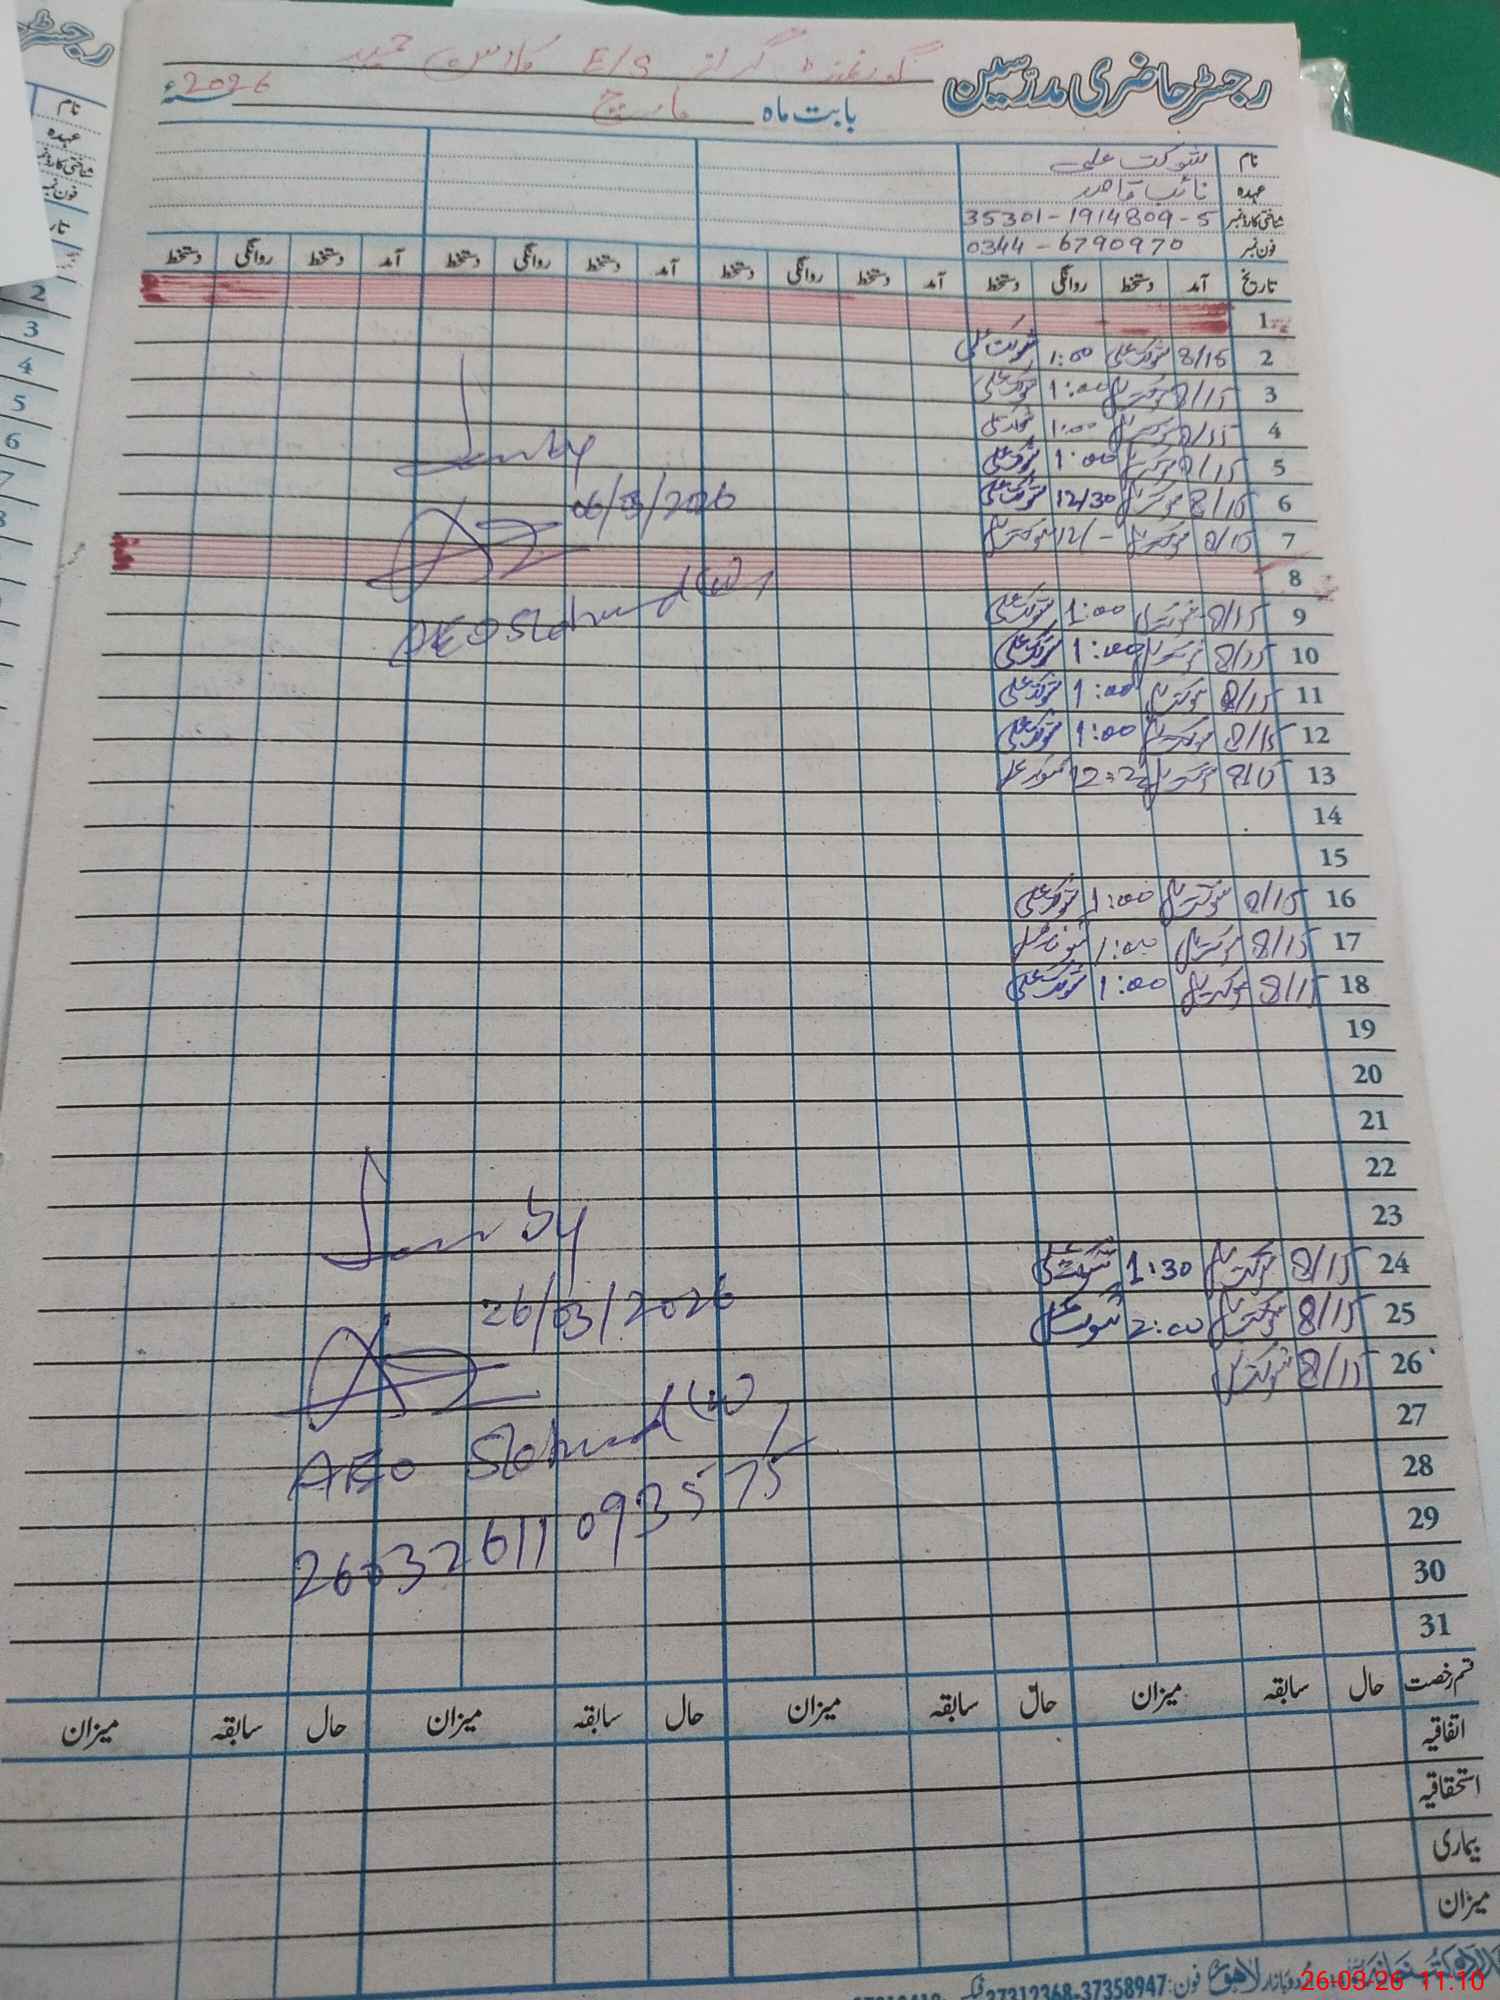 رجسٹر حاضری مدرسین گورنمنٹ گرلز E/S کلاس
بابت ماہ مارچ 2026ء
نام شوکت علی
عہدہ نائب قاصد
شناختی کارڈ نمبر 35301-1914809-5
فون نمبر 0344-6790970
تاریخ آمد دستخط روانگی دستخط آمد دستخط روانگی دستخط آمد دستخط روانگی دستخط آمد دستخط روانگی دستخط
1
2 8/15 شوکت علی 1:00 شوکت علی
3 8/15 شوکت علی 1:00 شوکت علی
4 8/15 شوکت علی 1:00 شوکت علی
5 8/15 شوکت علی 1:00 شوکت علی
6 8/15 شوکت علی 12/30 شوکت علی
06/03/2026
7 8/15 شوکت علی 12/- شوکت علی
8
AEO
9 8/15 شوکت علی 1:00 شوکت علی
10 8/15 شوکت علی 1:00 شوکت علی
11 8/15 شوکت علی 1:00 شوکت علی
12 8/15 شوکت علی 1:00 شوکت علی
13 شوکت علی شوکت علی
14
15
16 8/15 شوکت علی 1:00 شوکت علی
17 8/15 شوکت علی 1:00 شوکت علی
18 8/15 شوکت علی 1:00 شوکت علی
19
20
21
22
23
24 8/15 شوکت علی 1:30 شوکت علی
25 8/15 شوکت علی 2:00 شوکت علی
26/03/2026
26 8/15 شوکت علی
27
28
AEO
29
26032611093575
30
31
قسم رخصت حال سابقہ میزان حال سابقہ میزان حال سابقہ میزان حال سابقہ میزان
اتفاقیہ
استحقاقیہ
بیماری
میزان
اردو بازار لاہور فون: 37312368-37358947
26-03-26 11:10
رجسٹر
نام
عہدہ
شناختی کارڈ نمبر
فون نمبر
2
3
4
5
6
7